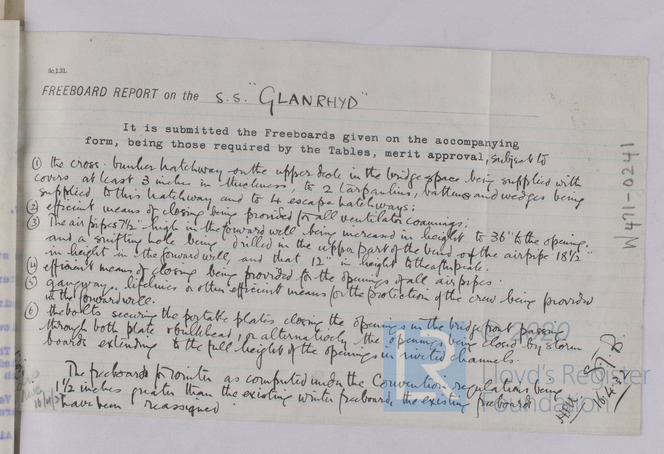 Sc.1.31.
FREEBOARD REPORT on the S.S. "GLANRHYD"
It is submitted the Freeboards given on the accompanying
form, being those required by the Tables, merit approval, subject to
(1) the cross-bunker hatchway on the upper deck in the bridge space being supplied with
covers at least 3 inches in thickness, to 2 tarpaulins, battens and wedges being
supplied to this hatchway and to 4 escape hatchways;
(2) efficient means of closing being provided for all ventilator coamings;
(3) The air pipes 7½" high in the forward well being increased in height to 36" to the opening,
and a snifting hole being drilled in the upper part of the bend of the airpipe 18½"
in height in the forward well, and that 12" in height to the afterpeak.
(4) efficient means of closing being provided for the openings of all airpipes.
(5) gangways, lifelines or other efficient means for the protection of the crew being provided
in the forward well.
(6) the bolts securing the portable plates closing the openings in the bridge front passing
through both plate & bulkhead, or alternatively the openings being closed by storm
boards extending to the full height of the openings in riveted channels.
The freeboards for Winter as computed under the Convention regulations being
1½ inches greater than the existing winter freeboard, the existing freeboards
have been reassigned.
W471-0241
© 2020
Lloyd's Register
Foundation